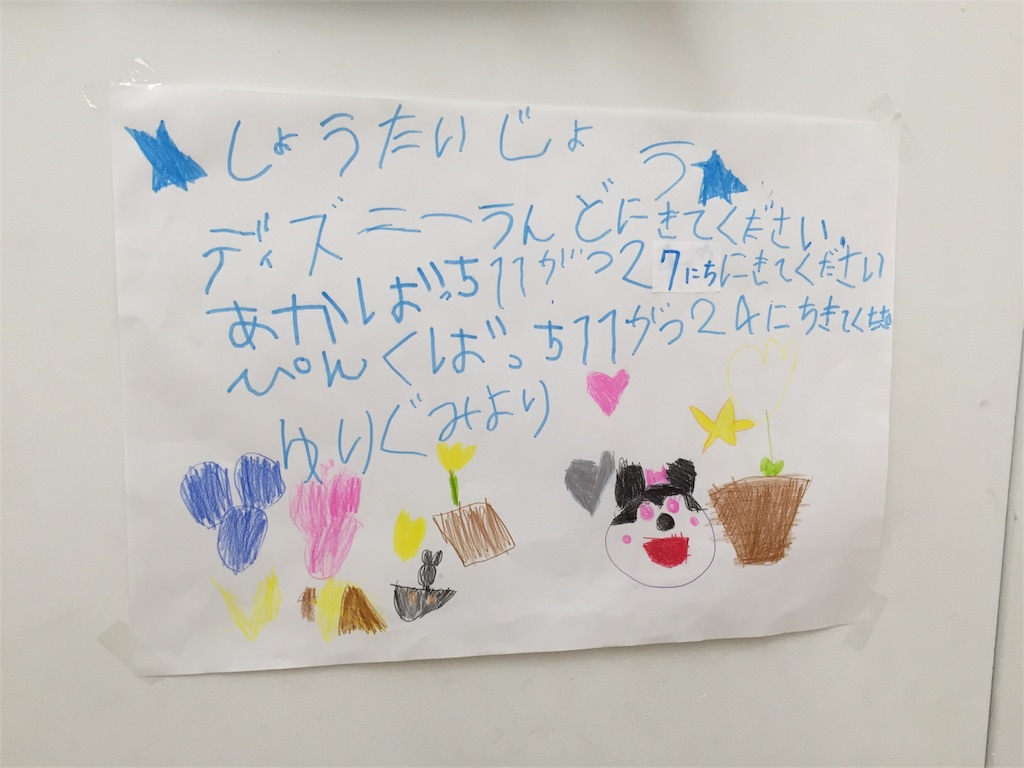 しょうたいじょう
ディズニーらんどにきてください。
あかばっち11がつ27にちにきてください
ぴんくばっち11がつ24にちきてください
ゆりぐみより